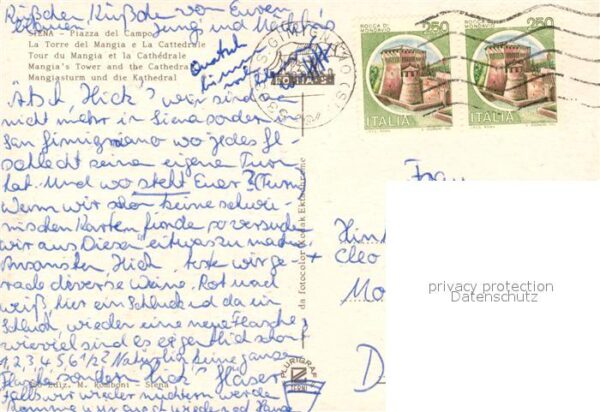 Küßchen, Küßchen von Euren
Jung und Matthias
SIENA - Piazza del Campo
La Torre del Mangia e La Cattedrale
Tour du Mangia et la Cathédrale
Mangia's Tower and the Cathedral
Mangiasturm und die Kathedral
250 250
ROCCA DI MONDAVIO
ROCCA DI MONDAVIO
ITALIA ITALIA
"Ätsch, Hick" wir sind
nicht mehr in Siena sondern in
San Gimignano wo jedes
seine eigene Turm
hat. Und wo steht Euer? (Turm)
Wenn wir schon keine
Karten finde so versuchen
wir aus Diesen etwas zu machen
Ansonsten, Hick, teste wir ge-
rade diverse Weine. Rot und
weiß, hier ein Schluck und da ein
Schluck wieder eine neue Flasche,
wieviel sind es eigentlich schon
1,2,3,4,5,6 1/2? Natürlich keine ganze
Flasche sondern "Hick" Gläser
Falls wir wieder nüchtern werde
Komme wir auch wieder
Ediz. M. Romboni - Siena
da fotocolor Kodak Ektachrome
PLURIGRAF
TERNI
Frau
Cleo
Mo
D
privacy protection
Datenschutz